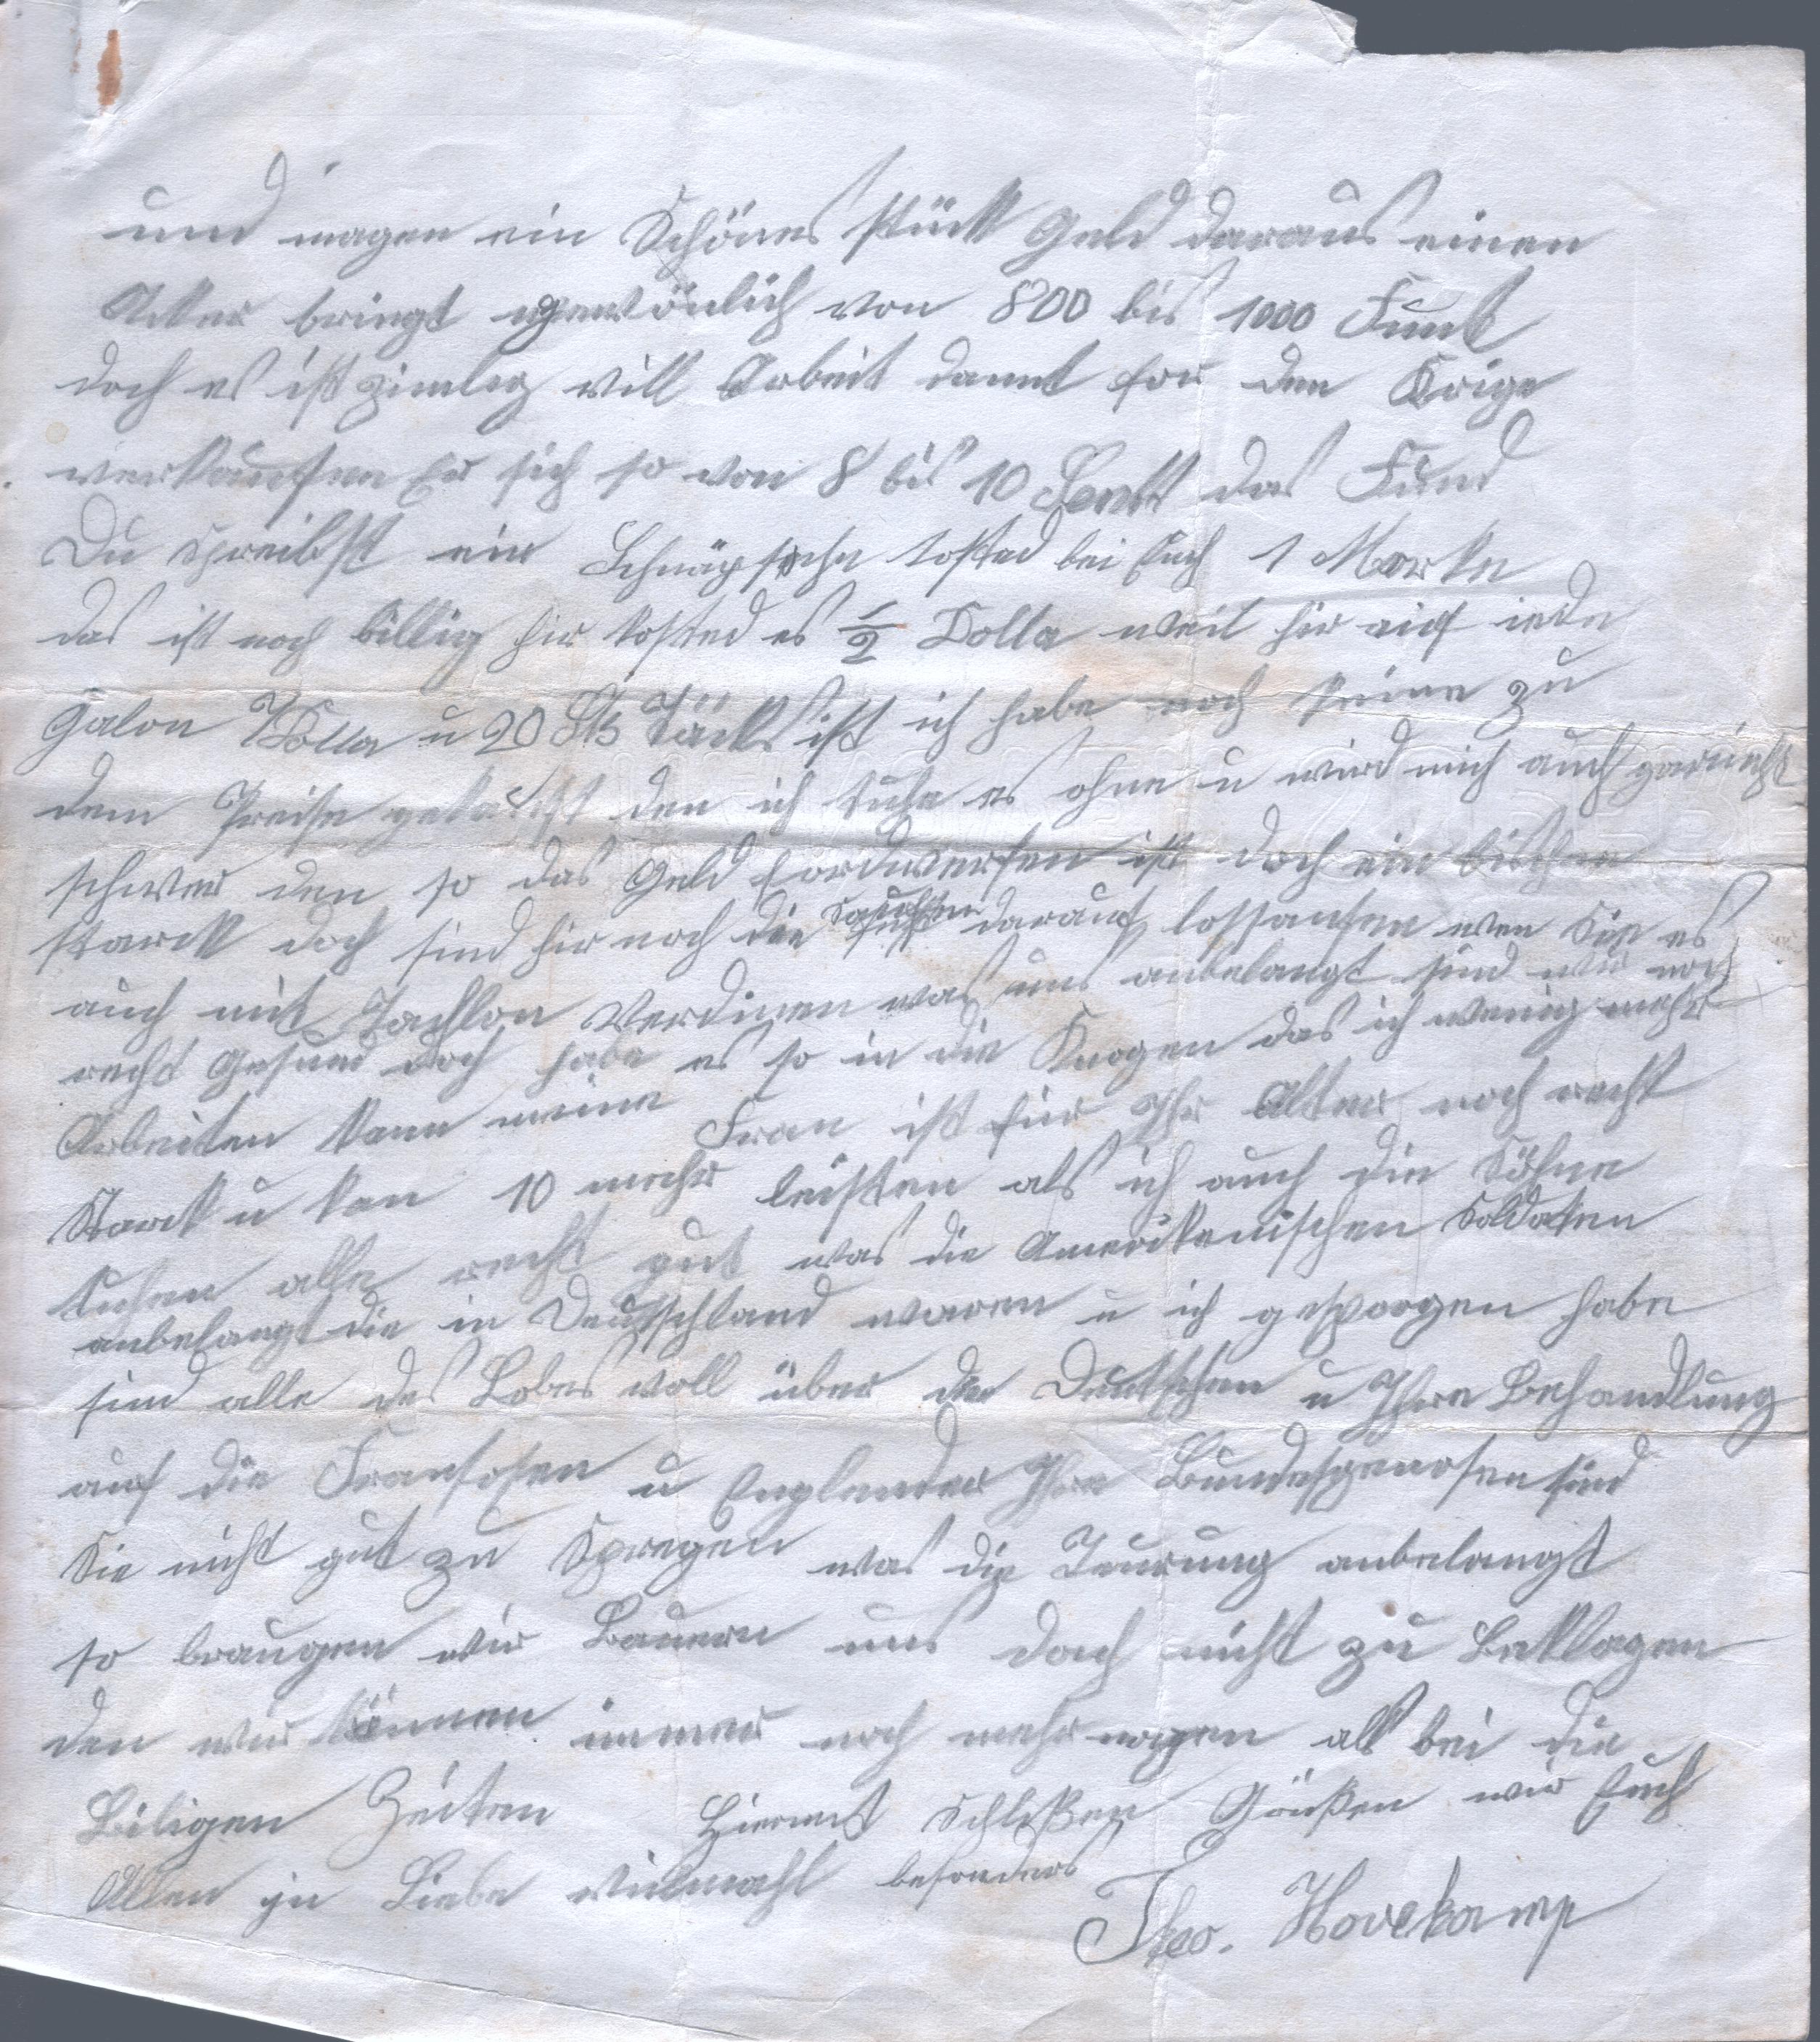 und magen ein Schönes stück Geld daraus einen
Acker bringt gewönlich von 800 bis 1000 Funt
doch es ist zimleg vill Arbeit damit for den Krige
verkauften Er sich so von 8 bis 10 Sentt das Fund
Du schreibst ein Schnäpschen kosted bei Euch 1 Marke
das ist noch billig hir kosted es ½ Dolla weil hir auf iede
Galon 7 Dolla u 20 Sts Täcks ist ich habe noch keine zu
dem Preise gekauft den ich tuhe es ohne u wird mich auch garnicht
schwer den so das Geld fordwerfen ist doch ein bischen
starck doch sind hir noch die darauf lossaufen wen Sie es
auch mit Verdinen was uns anbelangt sind wir noch
recht Gesund doch habe es so in die Knogen das ich wenig mehr
Arbeiten kann meine Frau ist für Ihr Alter noch recht
Starck u kan 10 mehr leisten als ich auch die Söhne
tuhen alle recht gut was die Amerikanischen Soldaten
anbelangt die in Deutschland waren u ich gesporgen habe
sind alle des Lobes voll über die Deutschen u Ihre Behandlung
auf die Fransosen u Englender Ihre Bundesgenosen sind
Sie nicht gut zu Spregen was die Teurung anbelangt
so braugen wir Bauern uns doch nicht zu Beklagen
den wir können immer noch mehr magen als bei die
Biligen Zeiten Hiermit Schlißen Grüßen wir Euch
Allen in Liebe vielmahl besonders
Theo. Hovekamp